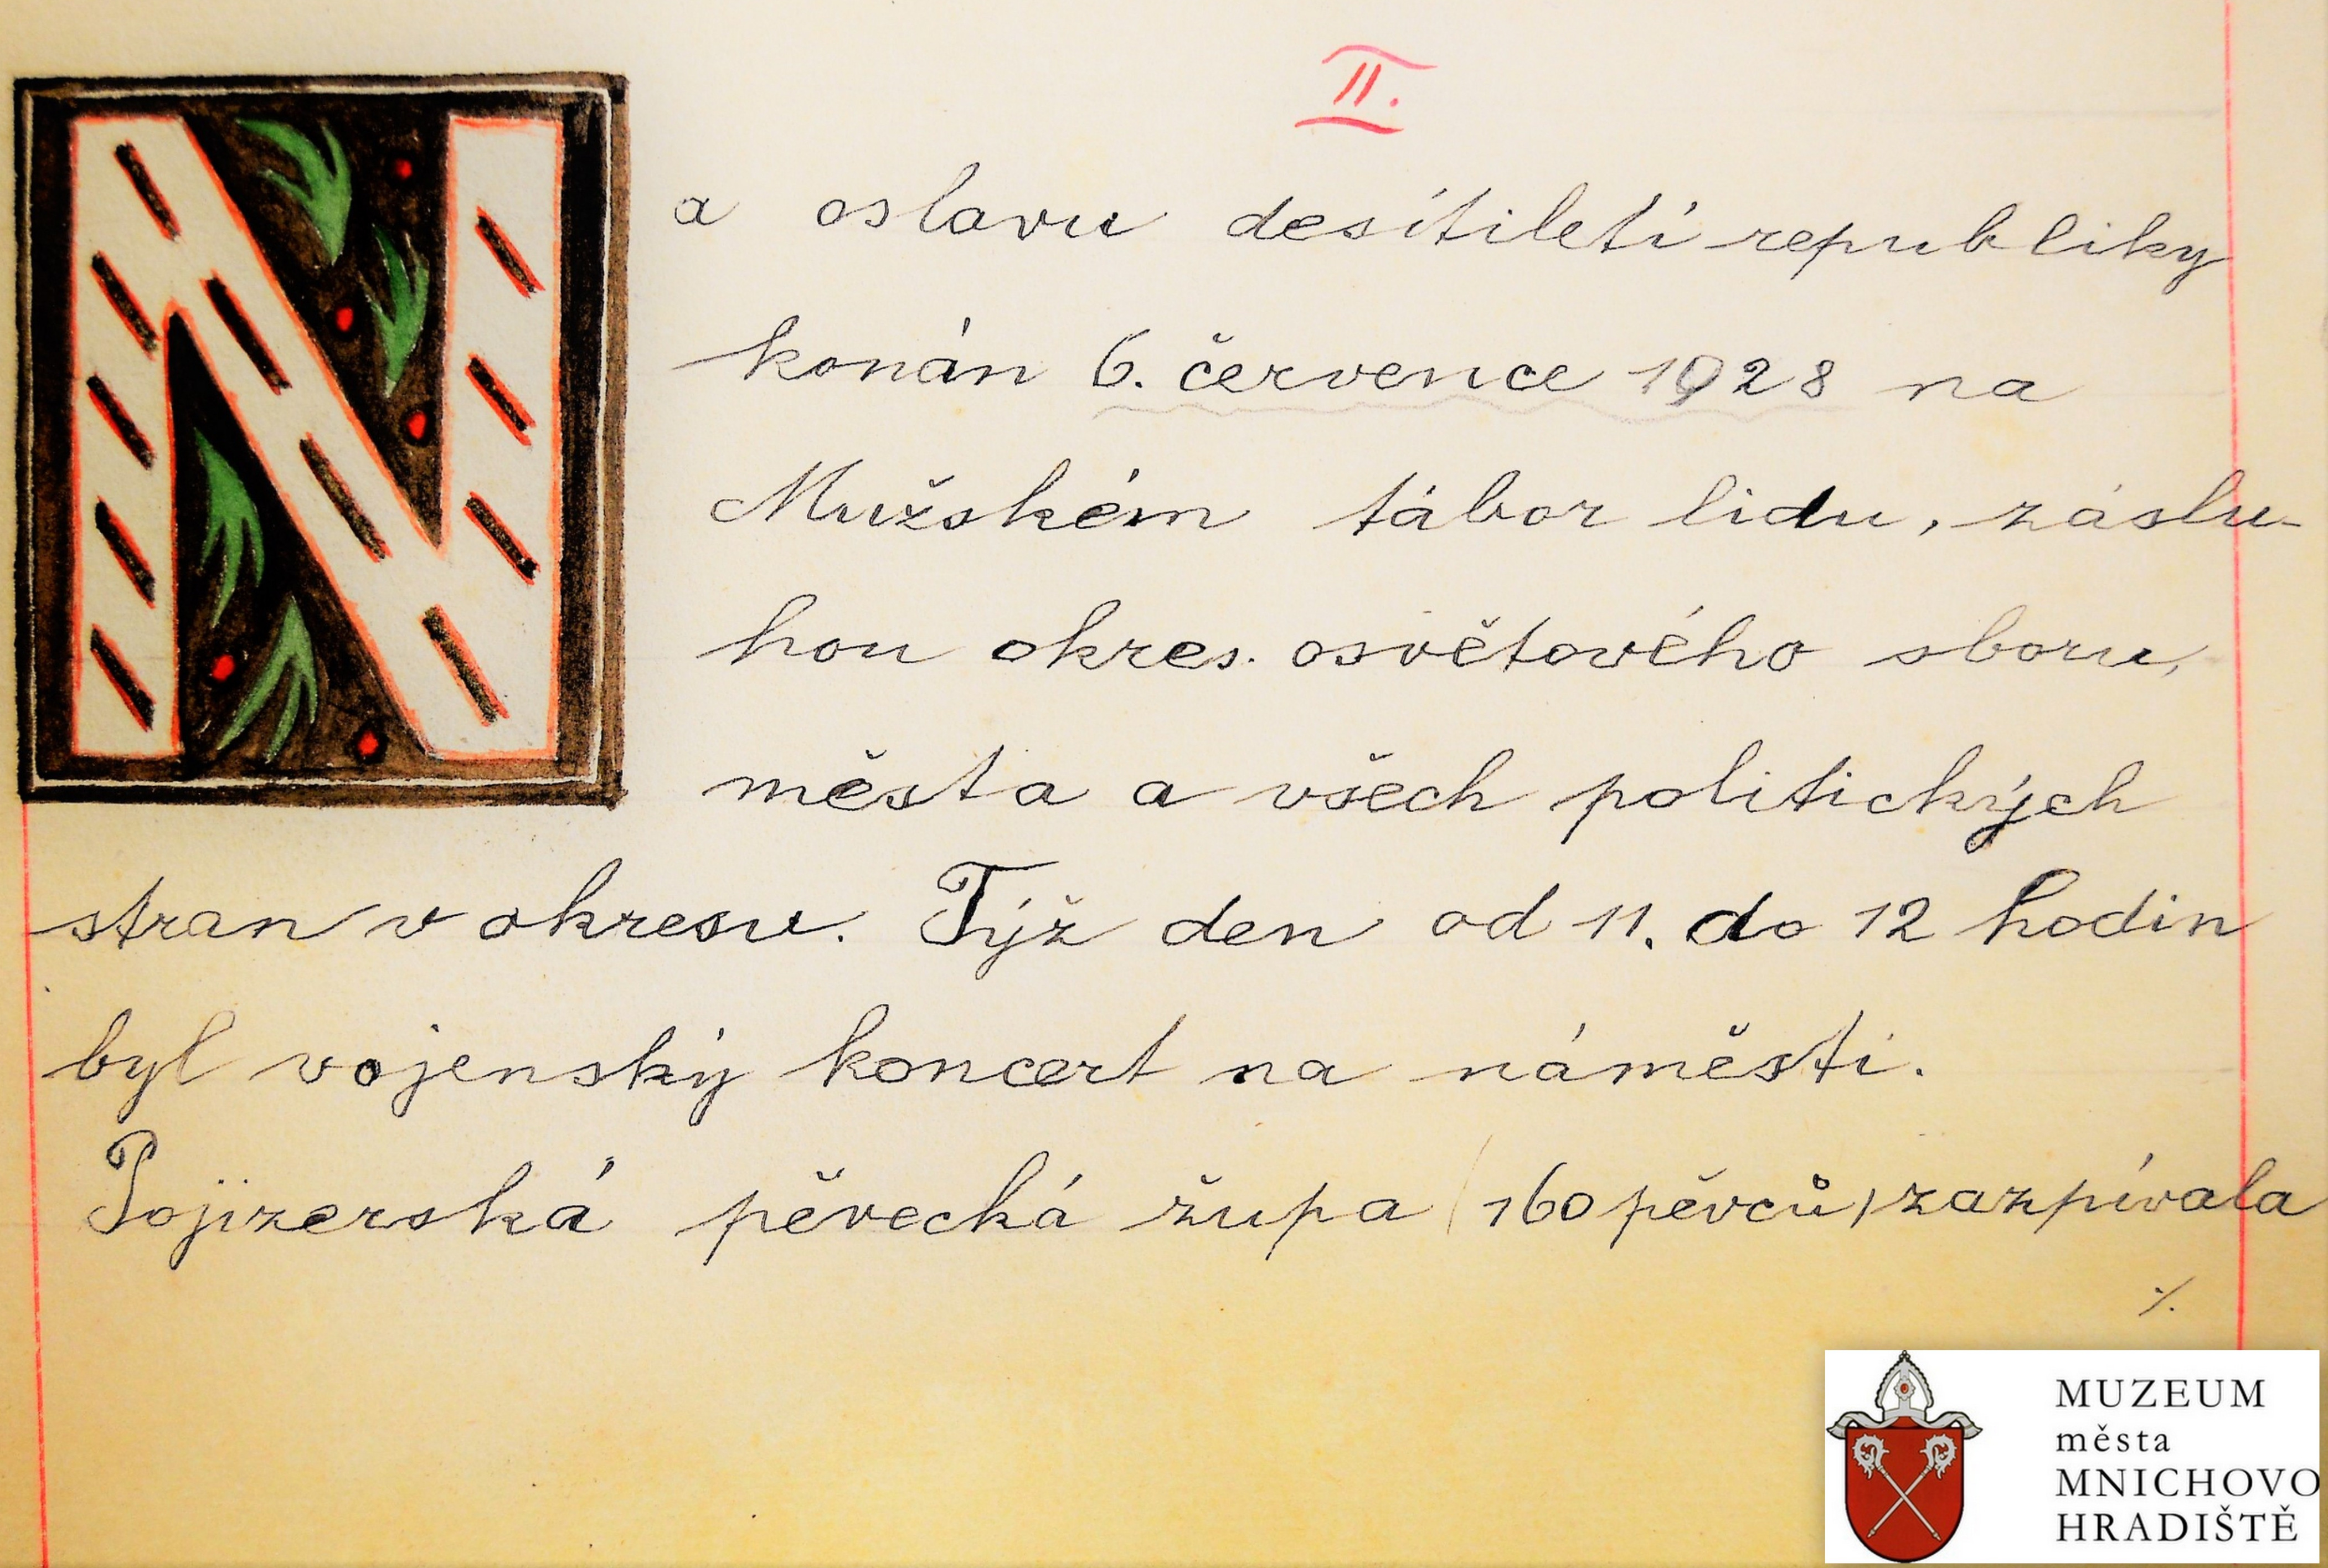 II.
Na oslavu desítiletí republiky
konán 6. července 1928 na
Mužském tábor lidu, záslu-
hou okres. osvětového sboru,
města a všech politických
stran v okresu. Týž den od 11. do 12 hodin
byl vojenský koncert na náměstí.
Pojizerská pěvecká župa (160 pěvců) zazpívala
./.
MUZEUM
města
MNICHOVO
HRADIŠTĚ